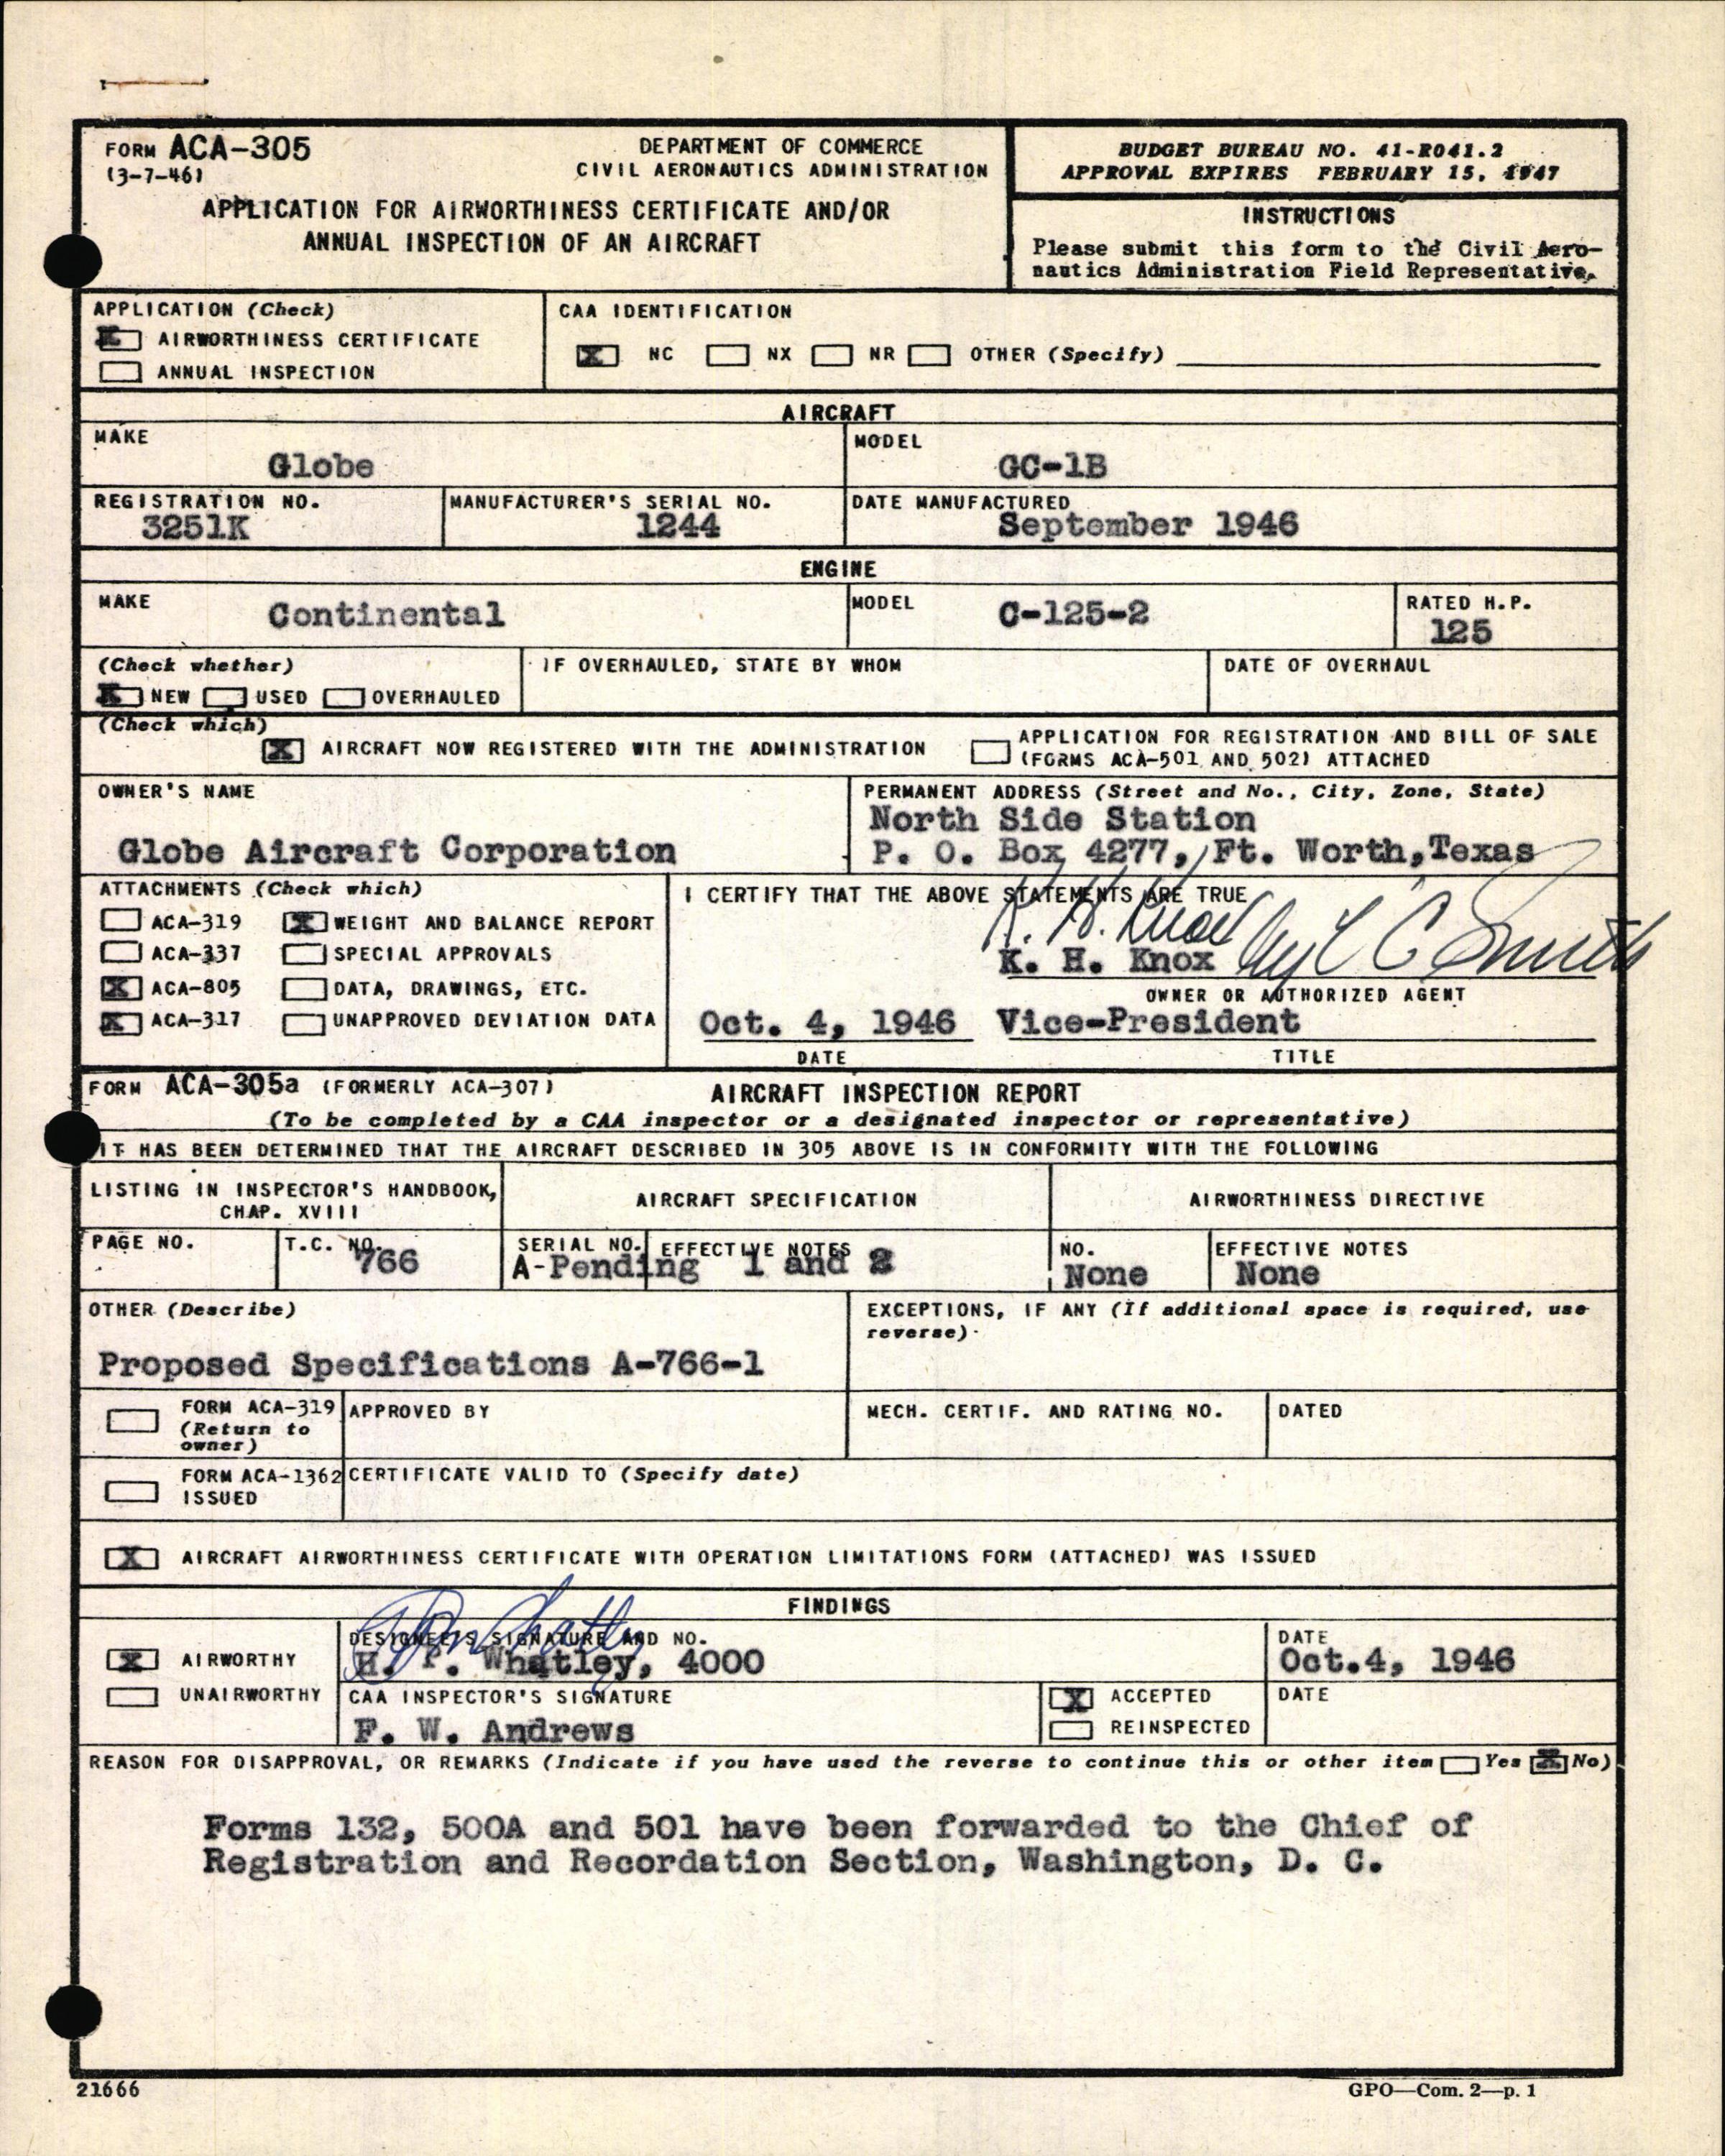 FORM ACA-305
(3-7-46)
DEPARTMENT OF COMMERCE
CIVIL AERONAUTICS ADMINISTRATION
APPLICATION FOR AIRWORTHINESS CERTIFICATE AND/OR
ANNUAL INSPECTION OF AN AIRCRAFT
BUDGET BUREAU NO. 41-R041.2
APPROVAL EXPIRES FEBRUARY 15, 1947
INSTRUCTIONS
Please submit this form to the Civil Aero-
nautics Administration Field Representative.
APPLICATION (Check)
X AIRWORTHINESS CERTIFICATE
ANNUAL INSPECTION
CAA IDENTIFICATION
X NC NX NR OTHER (Specify)
AIRCRAFT
MAKE
Globe
MODEL
GC-1B
REGISTRATION NO.
3251K
MANUFACTURER'S SERIAL NO.
1244
DATE MANUFACTURED
September 1946
ENGINE
MAKE
Continental
MODEL
C-125-2
RATED H.P.
125
(Check whether)
X NEW USED OVERHAULED
IF OVERHAULED, STATE BY WHOM
DATE OF OVERHAUL
(Check which)
X AIRCRAFT NOW REGISTERED WITH THE ADMINISTRATION
APPLICATION FOR REGISTRATION AND BILL OF SALE
(FORMS ACA-501 AND 502) ATTACHED
OWNER'S NAME
Globe Aircraft Corporation
PERMANENT ADDRESS (Street and No., City, Zone, State)
North Side Station
P. O. Box 4277, Ft. Worth,Texas
ATTACHMENTS (Check which)
ACA-319 X WEIGHT AND BALANCE REPORT
ACA-337 SPECIAL APPROVALS
X ACA-805 DATA, DRAWINGS, ETC.
X ACA-317 UNAPPROVED DEVIATION DATA
I CERTIFY THAT THE ABOVE STATEMENTS ARE TRUE
K. H. Knox by L C Smith
K. H. Knox
OWNER OR AUTHORIZED AGENT
Oct. 4, 1946 Vice-President
DATE TITLE
FORM ACA-305a (FORMERLY ACA-307) AIRCRAFT INSPECTION REPORT
(To be completed by a CAA inspector or a designated inspector or representative)
IT HAS BEEN DETERMINED THAT THE AIRCRAFT DESCRIBED IN 305 ABOVE IS IN CONFORMITY WITH THE FOLLOWING
LISTING IN INSPECTOR'S HANDBOOK,
CHAP. XVIII
AIRCRAFT SPECIFICATION
AIRWORTHINESS DIRECTIVE
PAGE NO.
T.C. NO.
766
SERIAL NO. EFFECTIVE NOTES
A-Pending 1 and 2
NO.
None
EFFECTIVE NOTES
None
OTHER (Describe)
Proposed Specifications A-766-1
EXCEPTIONS, IF ANY (If additional space is required, use
reverse)
FORM ACA-319
(Return to
owner)
APPROVED BY
MECH. CERTIF. AND RATING NO.
DATED
FORM ACA-1362
ISSUED
CERTIFICATE VALID TO (Specify date)
X AIRCRAFT AIRWORTHINESS CERTIFICATE WITH OPERATION LIMITATIONS FORM (ATTACHED) WAS ISSUED
FINDINGS
X AIRWORTHY
UNAIRWORTHY
DESIGNEE'S SIGNATURE AND NO.
H. P. Whatley, 4000
DATE
Oct.4, 1946
CAA INSPECTOR'S SIGNATURE
F. W. Andrews
X ACCEPTED
REINSPECTED
DATE
REASON FOR DISAPPROVAL, OR REMARKS (Indicate if you have used the reverse to continue this or other item Yes X No)
Forms 132, 500A and 501 have been forwarded to the Chief of
Registration and Recordation Section, Washington, D. C.
21666
GPO—Com. 2—p. 1